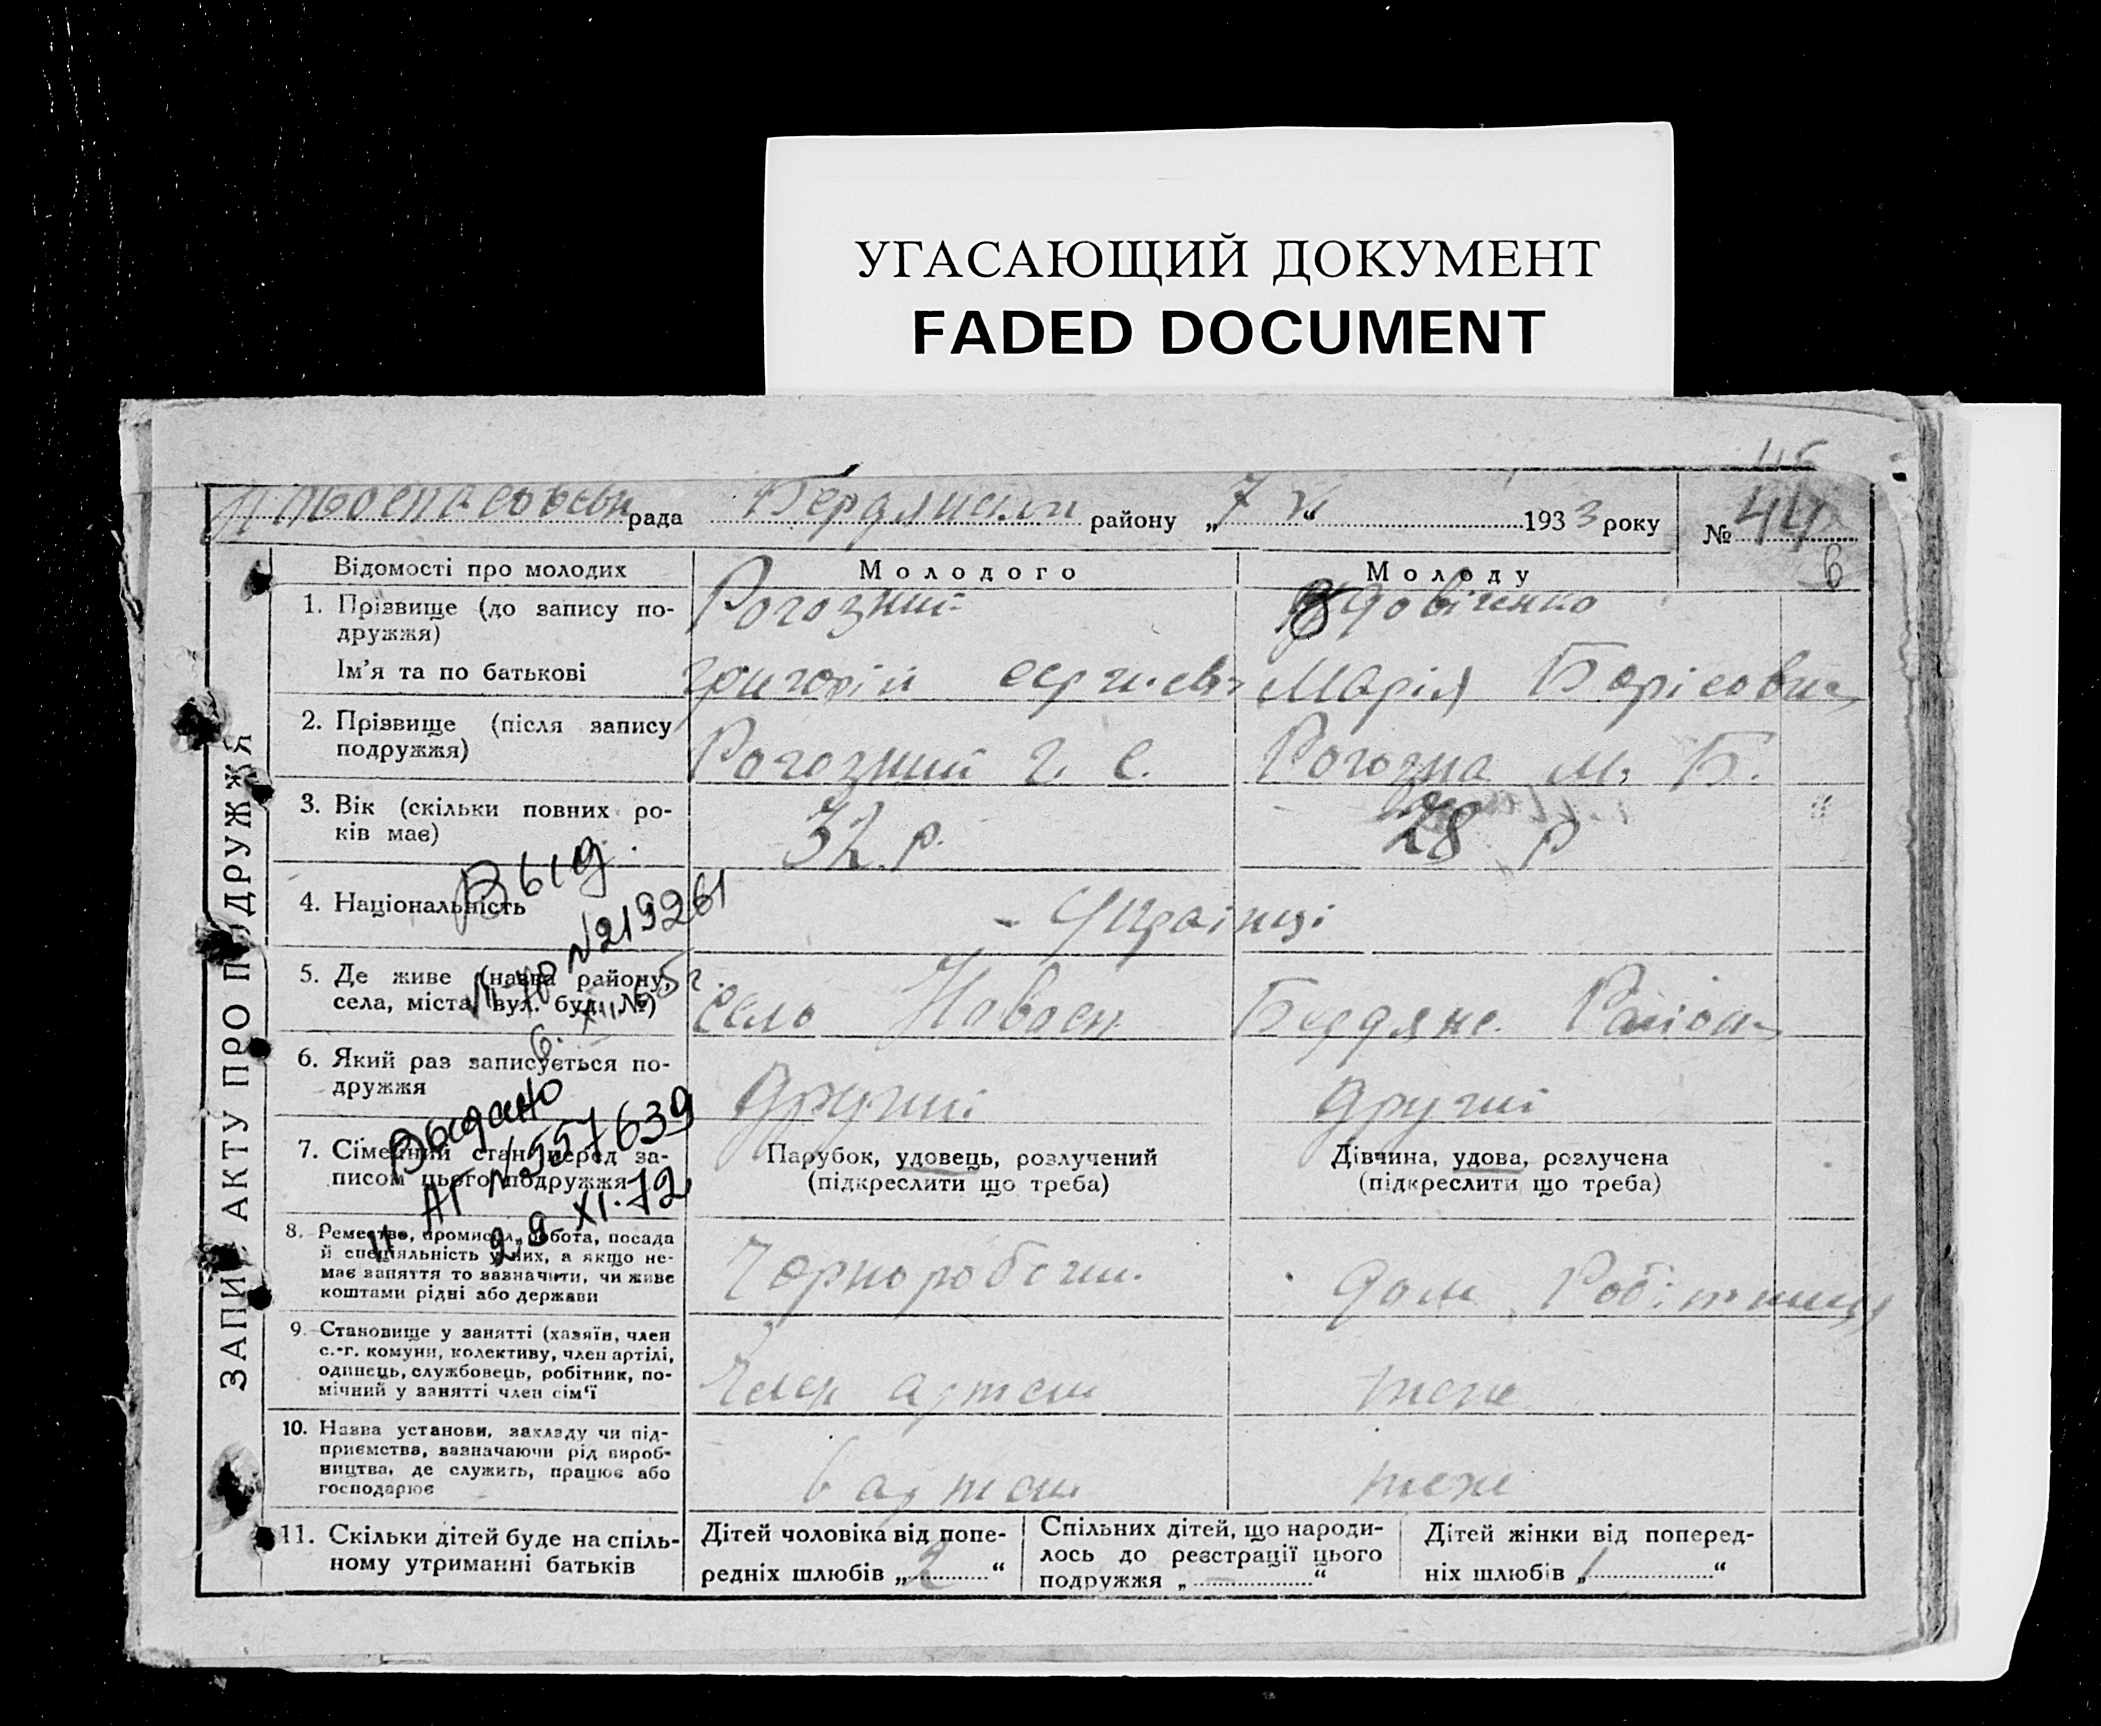 УГАСАЮЩИЙ ДОКУМЕНТ
FADED DOCUMENT
рада Бердянски району „7 “ 1933 року № 44
6
ЗАПИС АКТУ ПРО ПОДРУЖЖЯ
Відомості про молодих Молодого Молоду
1. Прізвище (до запису по- Рогозний Вдовіченко
дружжя)
Ім'я та по батькові Григорій Марія Борісовна
2. Прізвище (після запису
подружжя) Рогозний Г. С. Рогозна М. Б.
3. Вік (скільки повних ро-
ків має) 32 р. 28 р
Выд.
4. Національність - Українці
№219261
5. Де живе (назва району, Село Новосп. Бердянс. Район
села, міста, вул. буд. №)
6. XII 65 г.
6. Який раз записується по-
дружжя Другий Другий
Выдано
7. Сімейний стан перед за- Парубок, удовець, розлучений Дівчина, удова, розлучена
писом цього подружжя (підкреслити що треба) (підкреслити що треба)
АГ №557639
29 XI.72
8. Ремество, промисел, робота, посада
й спеціяльність у них, а якщо не-
має заняття то зазначити, чи живе Чорноробочи. дом. Робітниця
коштами рідні або держави
9. Становище у занятті (хазяїн, член
с.-г. комуни, колективу, член артілі,
одинець, службовець, робітник, по- Член артели теже
мічний у занятті член сім'ї
10. Назва установи, закладу чи під-
приємства, зазначаючи рід вироб-
ництва, де служить, працює або в артели теже
господарює
11. Скільки дітей буде на спіль- Дітей чоловіка від попе- Спільних дітей, що народи- Дітей жінки від поперед-
ному утриманні батьків редніх шлюбів „2“ лось до реєстрації цього ніх шлюбів „1“
подружжя „ “